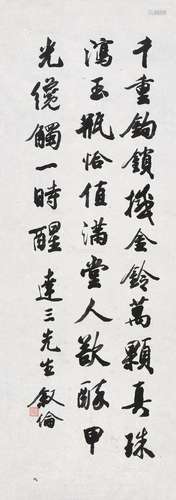 千重鉤鎖撼金鈴萬顆真珠
瀉玉瓶恰值滿堂人欲醉甲
光纔觸一時醒達三先生叙倫